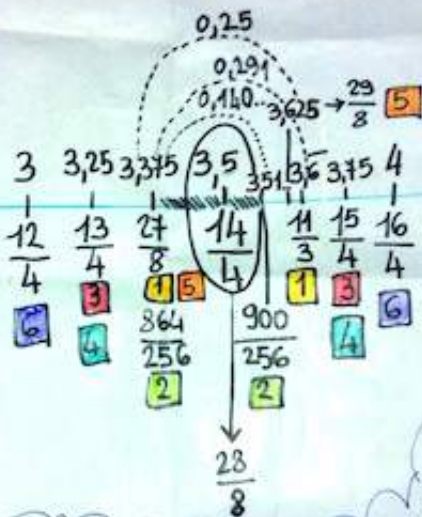 0,25
0,291
0,140...
3,625 → 29/8 5
3 3,25 3,375 3,5 3,51 3,6 3,75 4
12/4 13/4 27/8 14/4 11/3 15/4 16/4
6 3 1 5 1 3 6
4 864/256 900/256 4
2 2
28/8